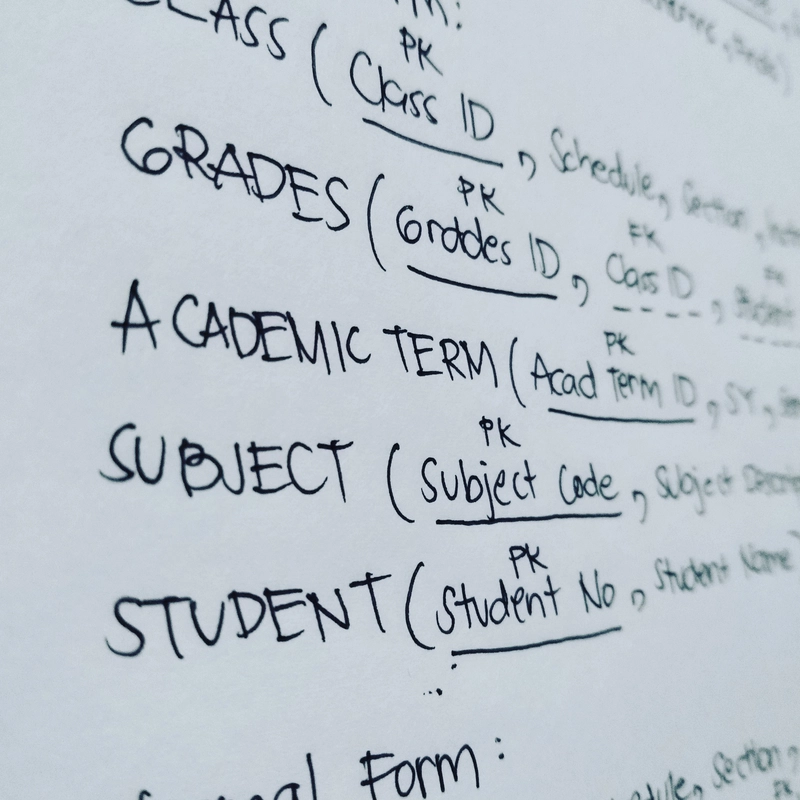 CLASS ( PK Class ID , Schedule, Section ,
GRADES ( PK Grades ID , FK Class ID , FK Student
ACADEMIC TERM ( PK Acad Term ID , SY ,
SUBJECT ( PK Subject Code , Subject
STUDENT ( PK Student No , Student Name
Form :
Section ,